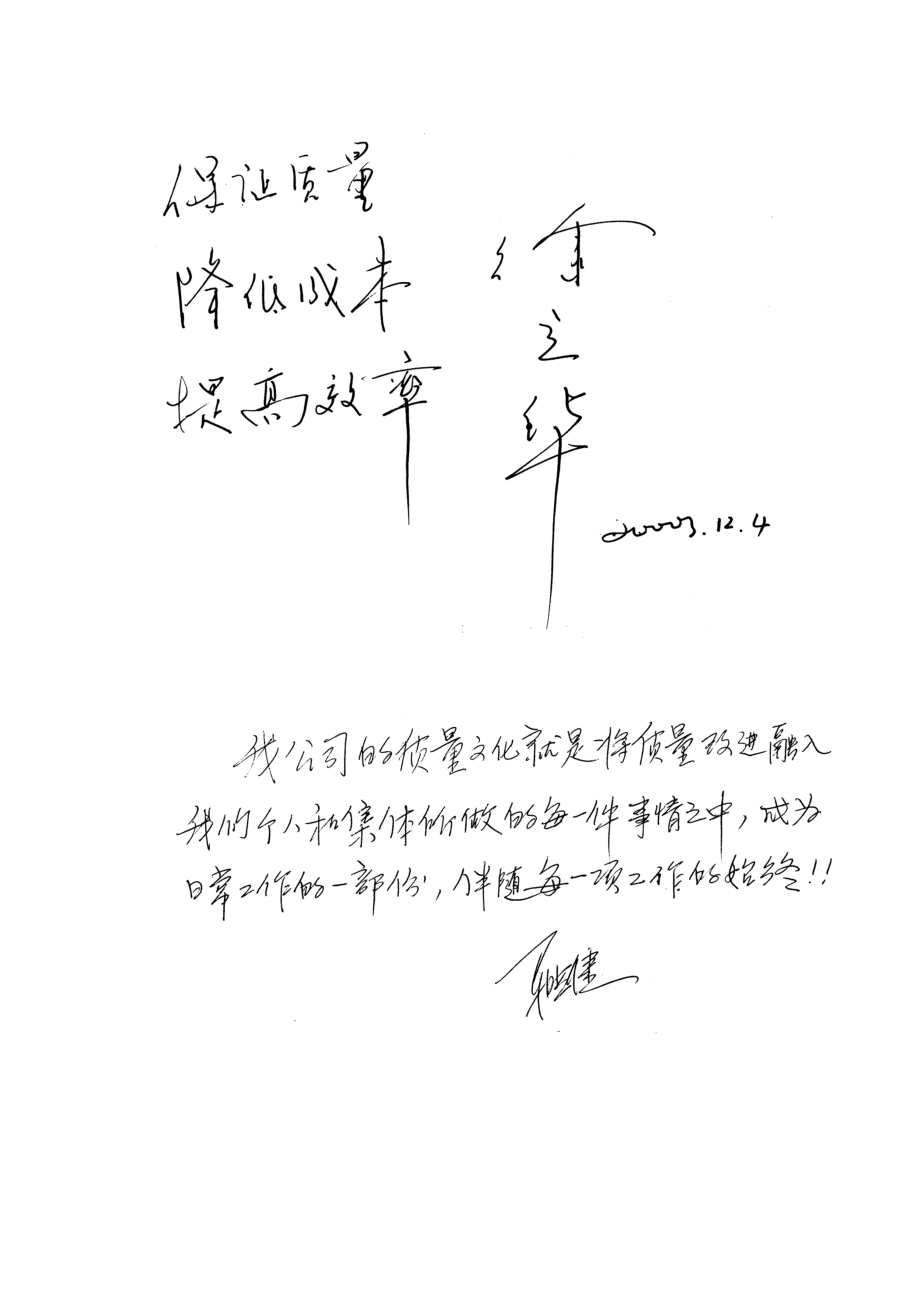 保证质量
降低成本
提高效率
徐立华
12.4
我公司的质量文化就是将质量改进融入
我们个人和集体所做的每一件事情之中，成为
日常工作的一部份，伴随每一项工作的始终！！